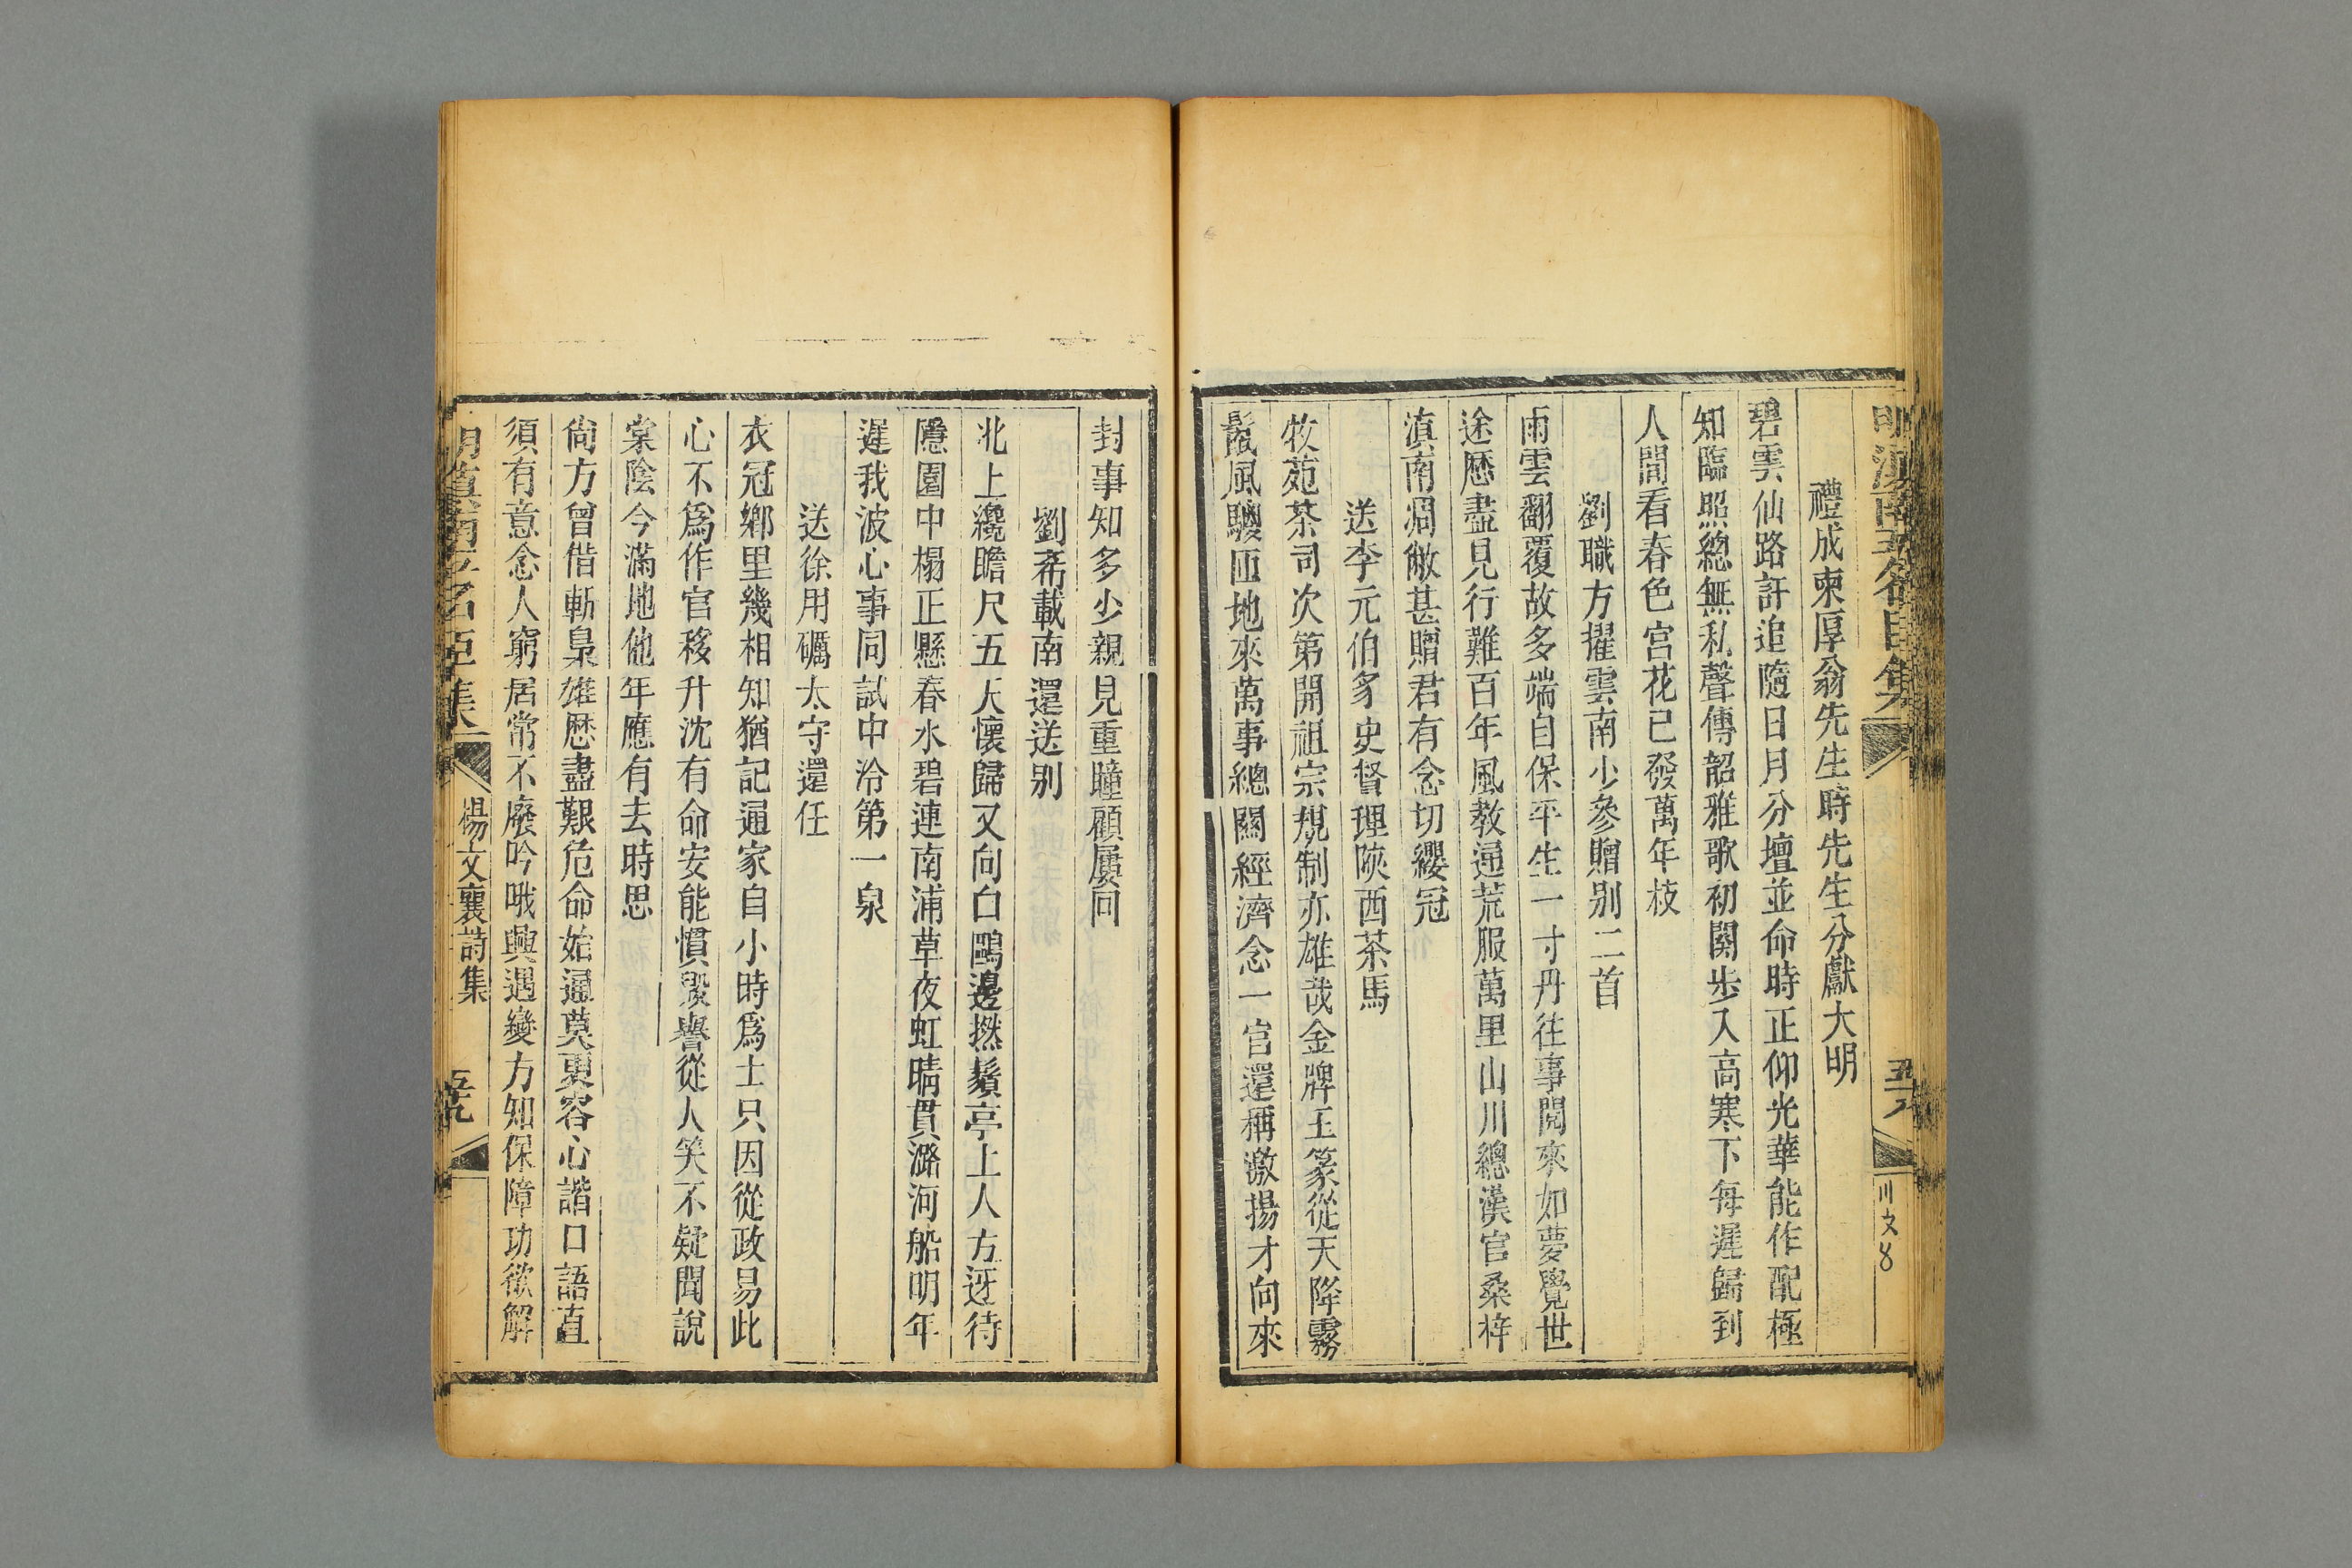 明滇南五名臣集
五八
川文8
禮成柬厚翁先生時先生分獻大明
碧雲仙路許追隨日月分壇並命時正仰光華能作配極
知臨照總無私聲傳韶雅歌初闋步入高寒下每遲歸到
人間看春色宮花已發萬年枝
劉職方擢雲南少參贈别二首
雨雲翻覆故多端自保平生一寸丹往事閱來如夢覺世
途歷盡見行難百年風教通荒服萬里山川總漢官桑梓
滇南凋敝甚贈君有念切纓冠
送李元伯豸史督理陜西茶馬
牧苑茶司次第開祖宗規制亦雄哉金牌玉篆從天降霧
鬛風騣匝地來萬事總關經濟念一官還稱激揚才向來
封事知多少親見重瞳顧屢回
劉希載南還送别
北上纔瞻尺五天懷歸又向白鷗邊撚鬚亭上人方迓待
隱園中榻正懸春水碧連南浦草夜虹晴貫潞河船明年
遲我波心事同試中泠第一泉
送徐用礪太守還任
衣冠鄉里幾相知猶記通家自小時爲士只因從政易此
心不爲作官移升沈有命安能慣毀譽從人笑不疑聞說
棠陰今滿地他年應有去時思
尙方曾借斬梟雄歷盡艱危命始通莫更容心諧口語直
須有意念人窮居常不廢吟哦興遇變方知保障功欲解
明滇南五名臣集
楊文襄詩集
五九